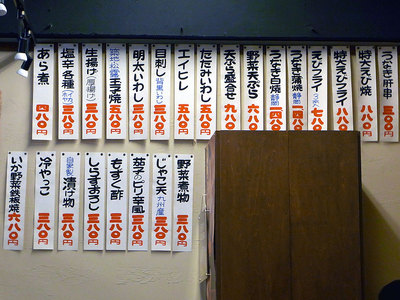 うなぎ肝串 三八〇円
特大えび焼 八八〇円
特大えびフライ 八八〇円
えびフライ 七八〇
うなぎ蒲焼 静岡 一四八〇
うなぎ白焼 静岡 一四八〇
野菜天ぷら 六八〇
天ぷら盛合せ 九八〇
たたみいわし 五八〇円
エイヒレ 五八〇円
目刺し(背黒いわし) 三八〇円
明太いわし 三八〇円
築地松露玉子焼 三八〇円
生揚げ(厚揚げ) 三八〇円
塩辛各種 三八〇円
あら煮 四八〇円
野菜煮物 三八〇円
じゃこ天 九州産 三八〇円
茄子のピリ辛風 三八〇円
もずく酢 三八〇円
しらすおろし 三八〇円
自家製漬け物 三八〇円
冷やっこ 三八〇円
いか野菜鉄板焼 六八〇円